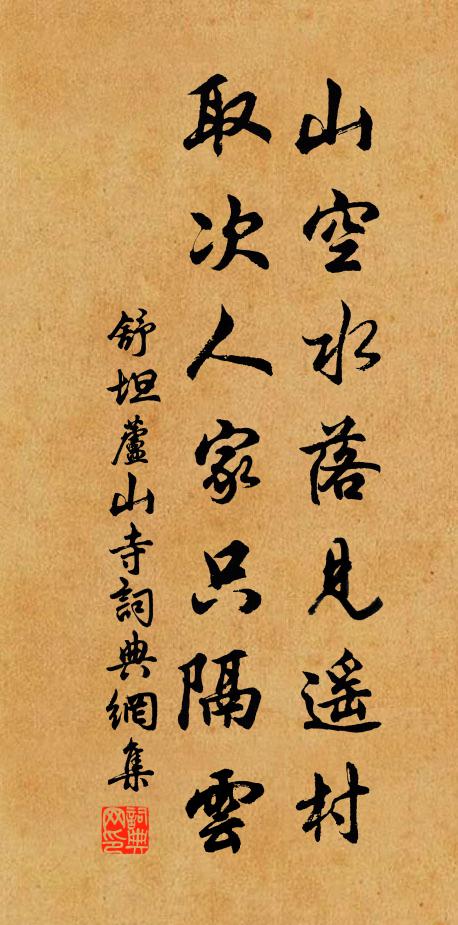 山空水落見遥村
取次人家只隔雲
舒坦蘆山寺詞典網集
詞典网印